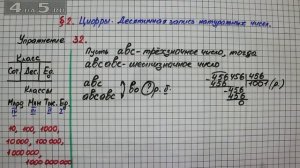 4 на 5.ru
§2. Цифры. Десятичная запись натуральных чисел.
Упражнение 32.
Пусть abc - трёхзначное число, тогда
abcabc - шестизначное число
Класс
Сот. Дес. Ед.
Классы
Млрд Млн Тыс. Ед.
IV III II I
10, 100, 1000,
10 000, 100 000,
1 000 000,
1 000 000 000
abc
abcabc
во ? р. б.
456 456 | 456
456 | 1001 (р.)
456
456
0